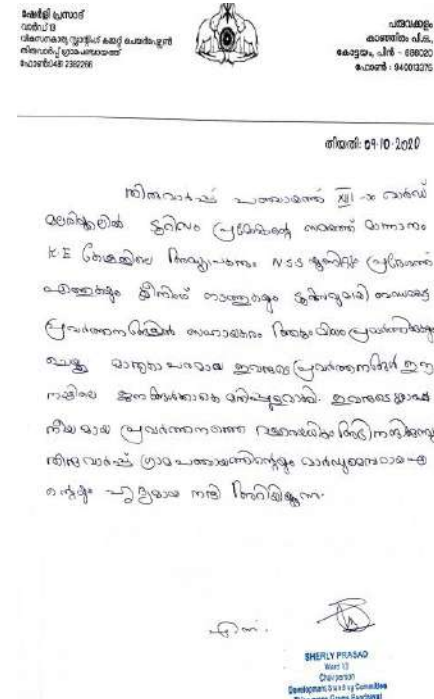 ഷേർളി പ്രസാദ്
വാർഡ് 13
വികസനകാര്യ സ്റ്റാന്റിംഗ് കമ്മറ്റി ചെയർപേഴ്സൺ
തിരുവാർപ്പ് ഗ്രാമപഞ്ചായത്ത്
ഫോൺ:0481 2382266
കാഞ്ഞിരം പി.ഒ.,
കോട്ടയം, പിൻ - 686020
ഫോൺ : 940013375
തിയതി: 09-10-2020
തിരുവാർപ്പ് പഞ്ചായത്ത് XIII -ാം വാർഡ്
മലരിക്കലിൽ ടൂറിസം പ്രദേശത്തിന്റെ സമയത്ത് മാന്നാനം
K.E കോളേജിലെ അദ്ധ്യാപകരും N.S.S യൂണിറ്റും പ്രദേശത്ത്
എത്തുകയും ക്ലീനിംഗ് നടത്തുകയും ടൂറിസവുമായി ബന്ധപ്പെട്ട
പ്രവർത്തനങ്ങളിൽ
ചെയ്തു. മാതൃകാപരമായ ഇവരുടെ പ്രവർത്തനങ്ങൾ ഈ
നാട്ടിലെ ജനങ്ങൾക്കാകെ മതിപ്പുളവാക്കി. ഇവരുടെ ശ്ലാഘ
നീയമായ പ്രവർത്തനത്തെ അഭിനന്ദിക്കുന്നു
തിരുവാർപ്പ് ഗ്രാമപഞ്ചായത്തിന്റെയും വാർഡുമെമ്പറായ എ
ന്റെയും ഹൃദ്യമായ നന്ദി അറിയിക്കുന്നു.
എന്ന്.
SHERLY PRASAD
Ward 13
Chairperson
Development Standing Committee
Thiruvarppu Grama Panchayat